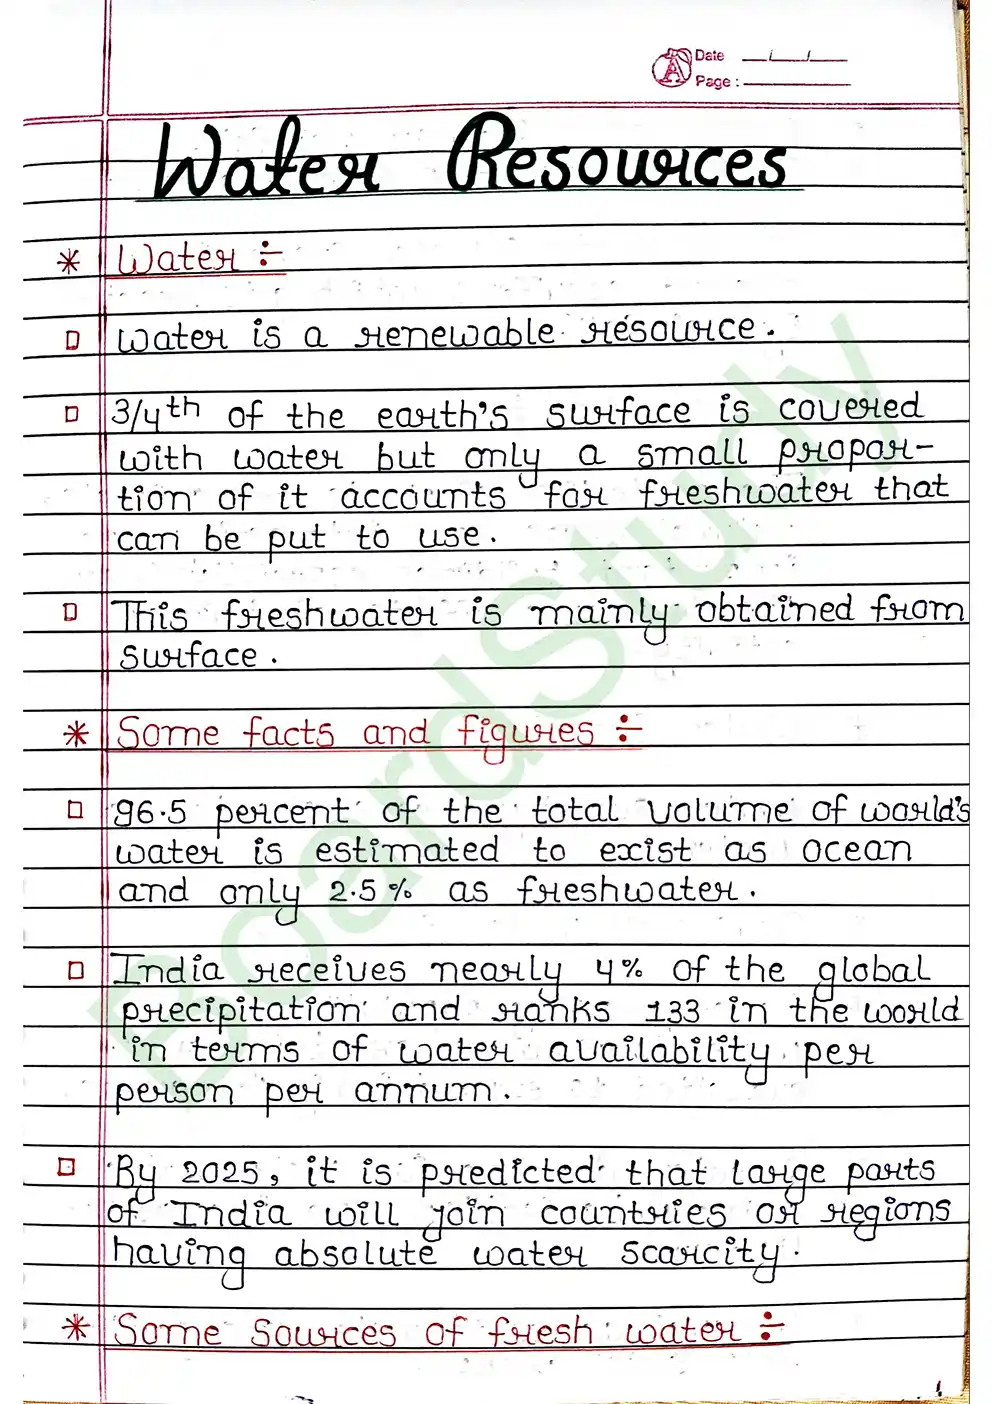 Date __/__/__
Page : ______
Water Resources
* Water ÷
□ Water is a renewable resource.
□ 3/4th of the earth's surface is covered
with water but only a small propor-
tion of it accounts for freshwater that
can be put to use.
□ This freshwater is mainly obtained from
surface.
* Some facts and figures ÷
□ 96.5 percent of the total volume of world's
water is estimated to exist as ocean
and only 2.5% as freshwater.
□ India receives nearly 4% of the global
precipitation and ranks 133 in the world
in terms of water availability per
person per annum.
□ By 2025, it is predicted that large parts
of India will join countries or regions
having absolute water scarcity.
* Some Sources of fresh water ÷
BoardStudy